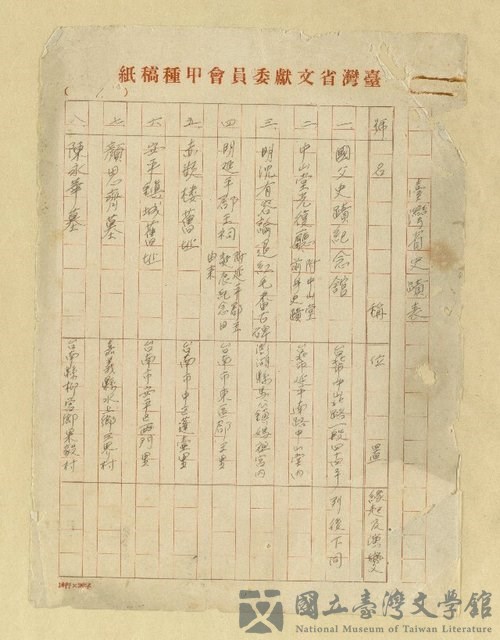 臺灣省文獻委員會甲種稿紙
臺灣省史蹟表
號 名 稱 位 置 緣起及演變
一 國父史蹟紀念館 台北市中山北路一段四十六号 列後下同
二 中山堂光復廳 附中山堂前年史蹟 台北市延平南路中山堂内
三 明沈有容諭退紅毛番古碑 澎湖縣馬公鎮媽祖宮内
四 明延平郡王祠 附延平郡王發展紀念日由來 台南市東區郡王里
五 赤崁樓舊址 台南市中區蓬壺里
六 安平鎮城舊址 台南市安平區西門里
七 顏思齊墓 嘉義縣水上鄉 村
八 陳永華墓 台南縣柳營鄉果毅村
國立臺灣文學館
National Museum of Taiwan Literature